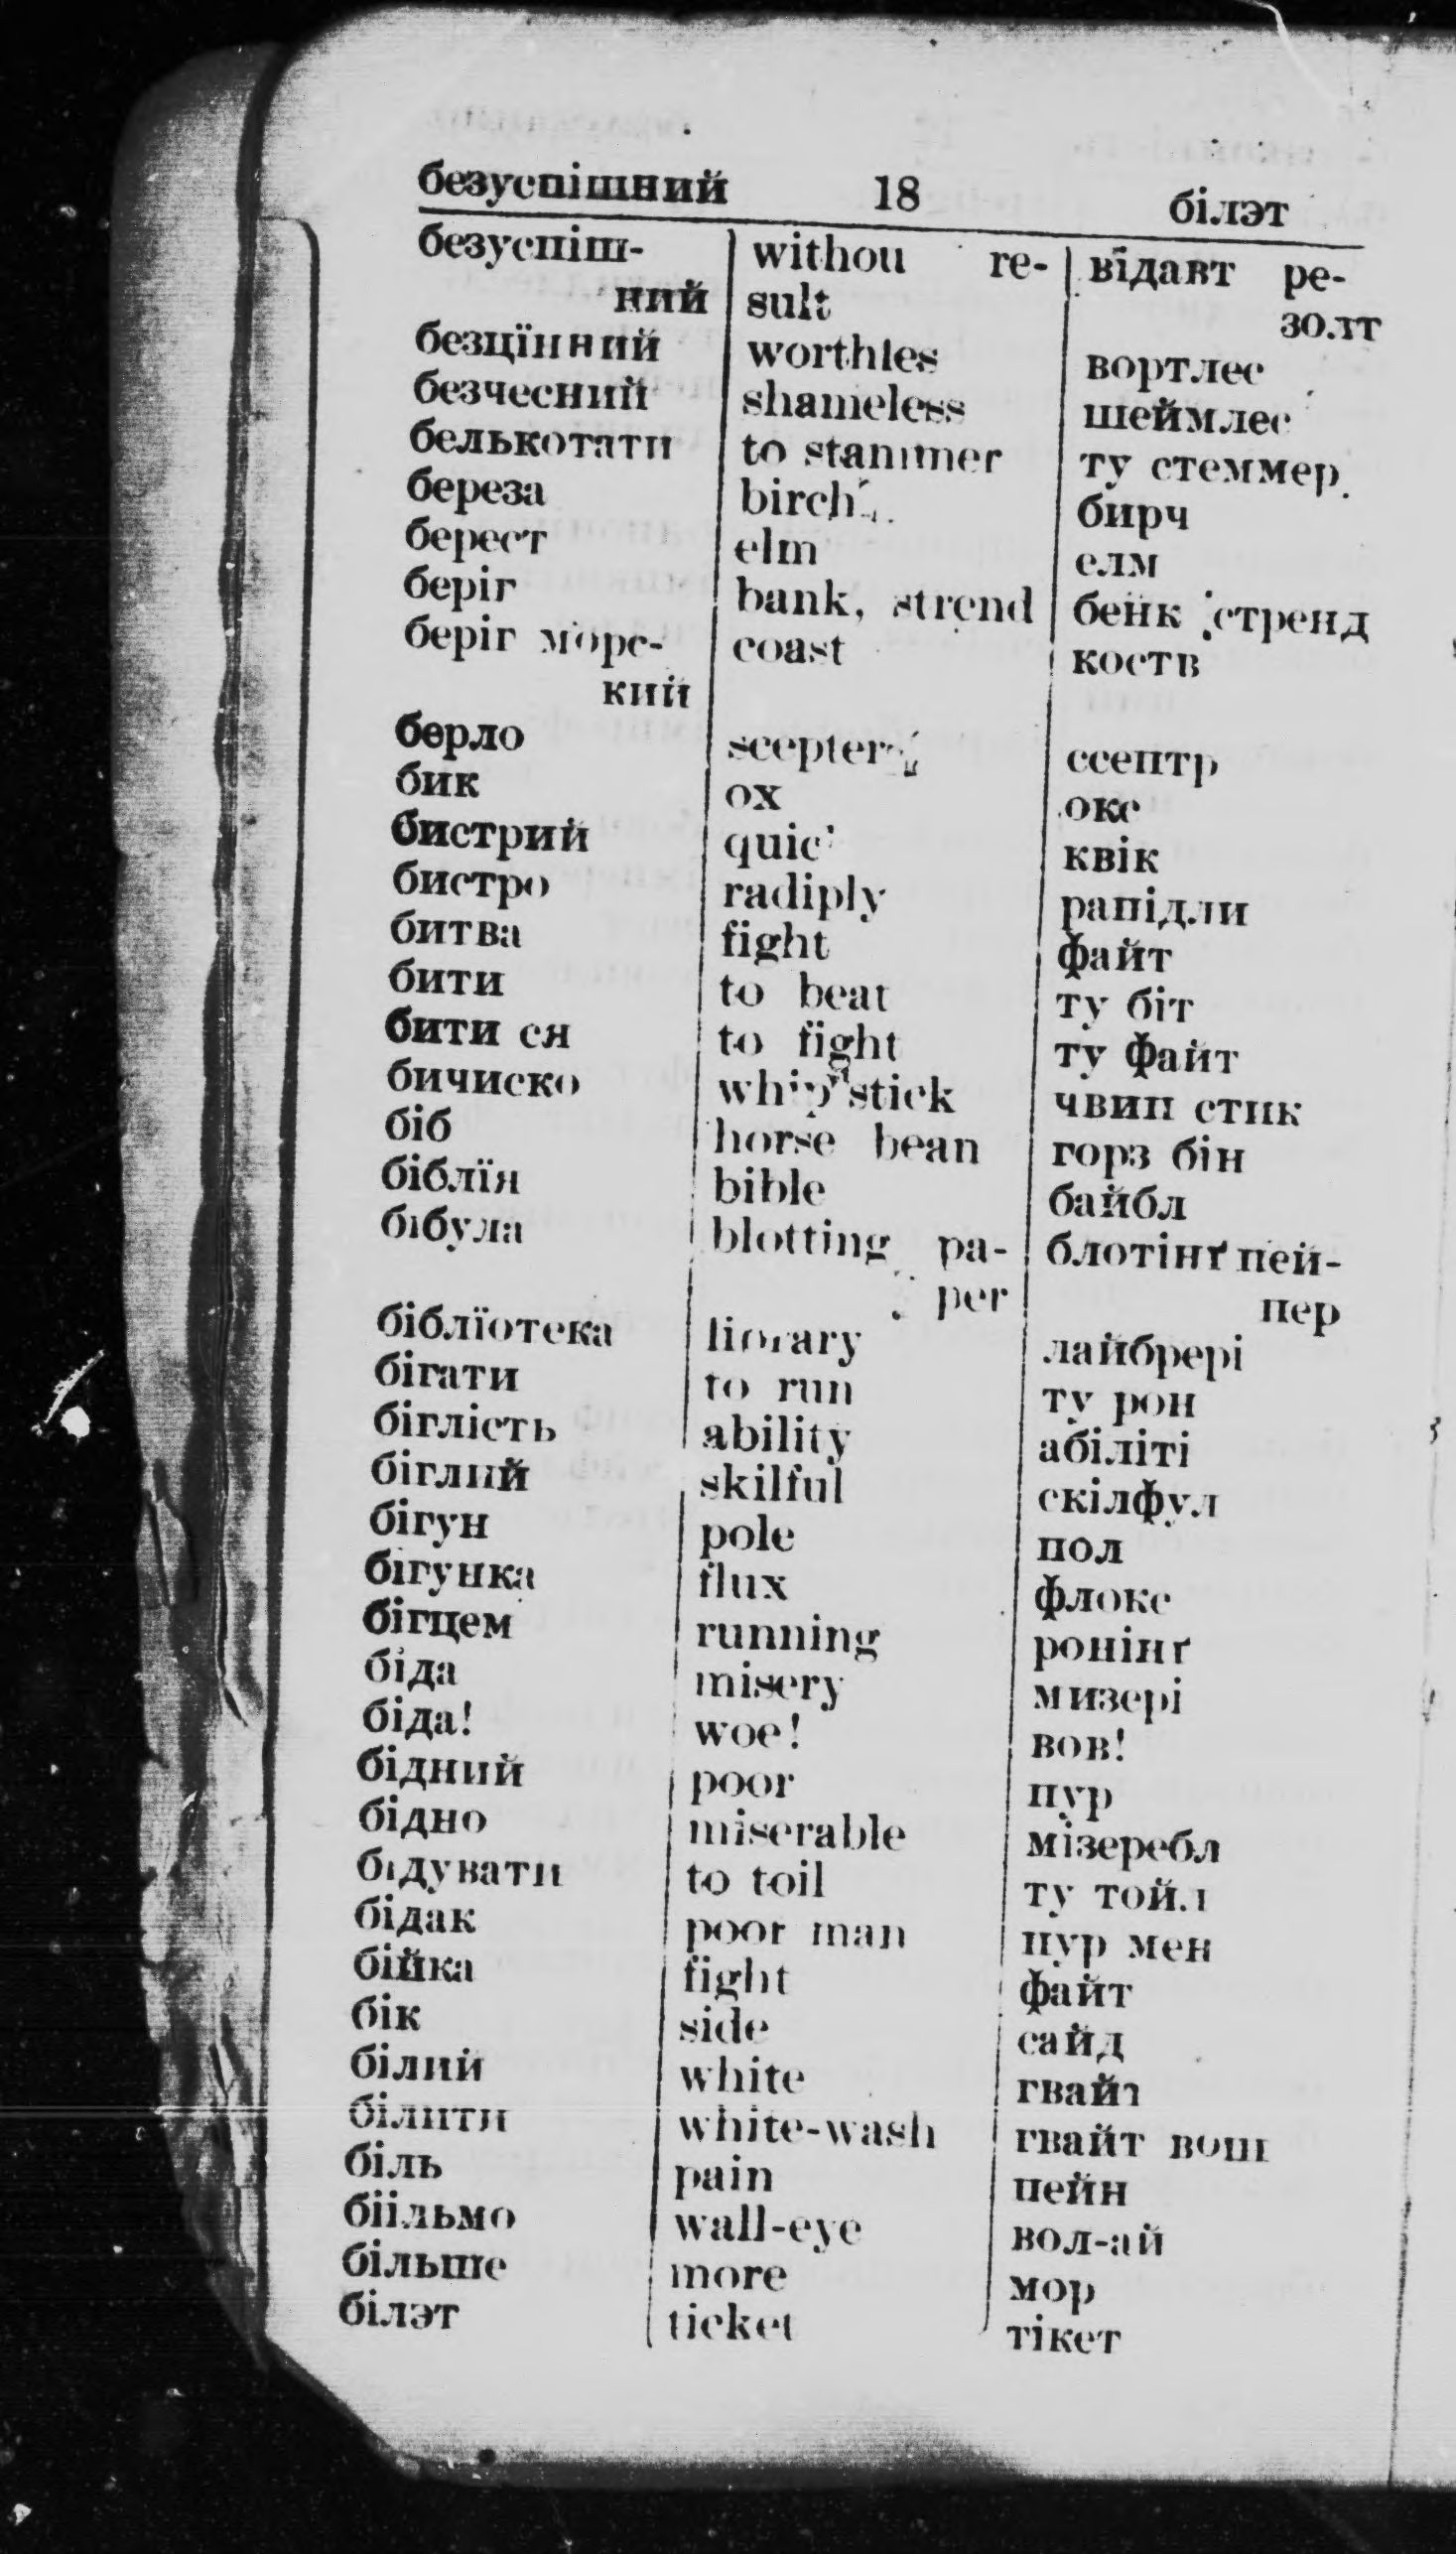 безуспішний 18 білэт
безуспіш- withou re- відавт ре-
ний sult золт
безцїнний worthles вортлес
безчесний shameless шеймлес
белькотати to stammer ту стеммер
береза birch бирч
берест elm елм
беріг bank, strend бенк стренд
беріг морс- coast коств
кий
берло scepter ссептр
бик ox окс
бистрий quic квік
бистро radiply рапідли
битва fight файт
бити to beat ту біт
бити ся to fight ту файт
бичиско whip stick чвип стик
біб horse bean горз бін
біблїя bible байбл
бібула blotting pa- блотінґ пей-
per пер
біблїотека library лайбрері
бігати to run ту рон
біглість ability абіліті
біглий skilful скілфул
бігун pole пол
бігунка flux флокс
бігцем running ронінґ
біда misery мизері
біда! woe! вов!
бідний poor пур
бідно miserable мізеребл
бідувати to toil ту тойл
бідак poor man пур мен
бійка fight файт
бік side сайд
білий white гвайт
білити white-wash гвайт вош
біль pain пейн
біільмо wall-eye вол-ай
більше more мор
білэт ticket тікет